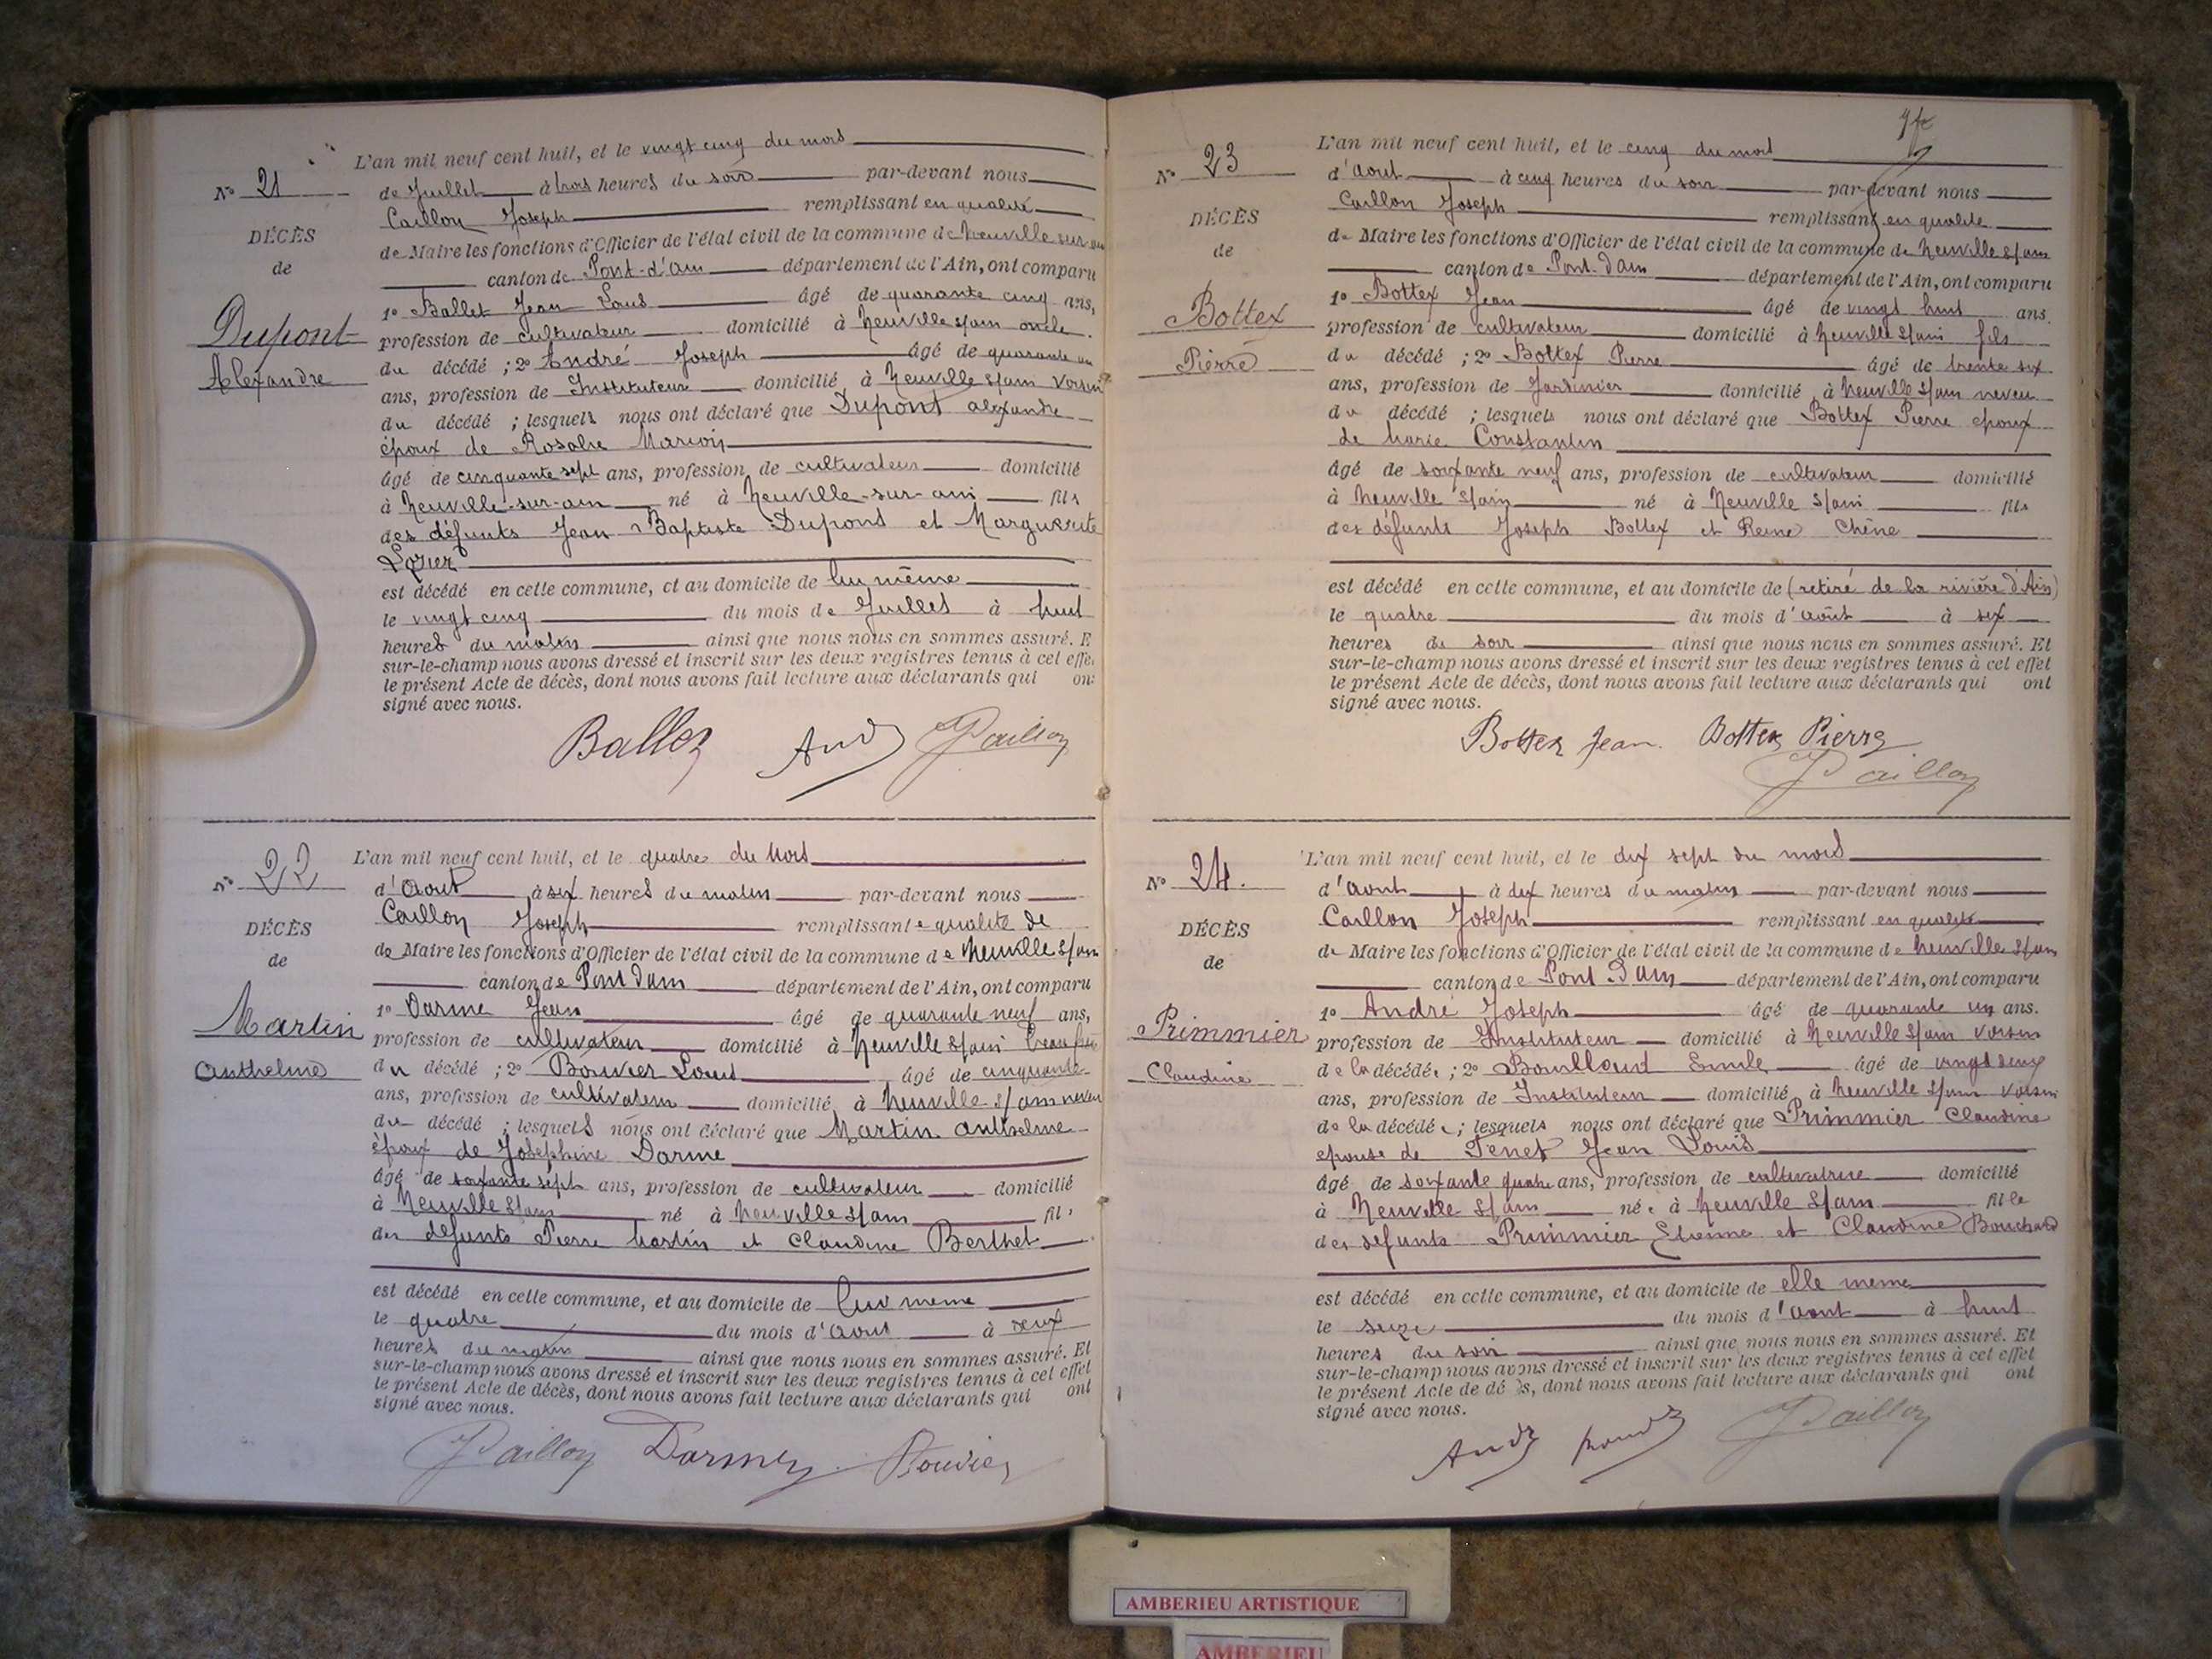 L'an mil neuf cent huit, et le vingt cinq du mois
N° 21
de Juillet à trois heures du soir par-devant nous
Caillon Joseph remplissant en qualité
DÉCÈS
de Maire les fonctions d'Officier de l'état civil de la commune de Neuville sur
de
canton de Pont-d'ain département de l'Ain, ont comparu
1° Ballet Jean Louis âgé de quarante cinq ans,
Dupont
profession de cultivateur domicilié à Neuville s/ain oncle
du décédé ; 2° André Joseph âgé de quarante un
Alexandre
ans, profession de Instituteur domicilié à Neuville s/ain voisin
du décédé ; lesquels nous ont déclaré que Dupont alexandre
époux de Rosalie
âgé de cinquante sept ans, profession de cultivateur domicilié
à Neuville-sur-ain né à Neuville-sur-ain fils
des défunts Jean Baptiste Dupont et Marguerite
est décédé en cette commune, et au domicile de lui même
le vingt cinq du mois de Juillet à huit
heures du matin ainsi que nous nous en sommes assuré. E
sur-le-champ nous avons dressé et inscrit sur les deux registres tenus à cet effe
le présent Acte de décès, dont nous avons fait lecture aux déclarants qui ont
signé avec nous.
Ballet And J Caillon
L'an mil neuf cent huit, et le quatre du Mois
N° 22
d'Aout à six heures du matin par-devant nous
Caillon Joseph remplissant e qualité de
DÉCÈS
de Maire les fonctions d'Officier de l'état civil de la commune de Neuville s/ain
de
canton de Pont d'ain département de l'Ain, ont comparu
1° Darme Jean âgé de quarante neuf ans,
Martin
profession de cultivateur domicilié à Neuville s/ain beau frère
du décédé ; 2° Bouvier Louis âgé de cinquante
Anthelme
ans, profession de cultivateur domicilié à Neuville s/ain neveu
du décédé ; lesquels nous ont déclaré que Martin anthelme
époux de Joséphine Darme
âgé de soixante sept ans, profession de cultivateur domicilié
à Neuville s/ain né à Neuville s/ain fils
des défunts Pierre Martin et Claudine Berthet
est décédé en cette commune, et au domicile de lui meme
le quatre du mois d'Aout à deux
heures du matin ainsi que nous nous en sommes assuré. Et
sur-le-champ nous avons dressé et inscrit sur les deux registres tenus à cet effet
le présent Acte de décès, dont nous avons fait lecture aux déclarants qui ont
signé avec nous.
J Caillon Darme Bouvier
L'an mil neuf cent huit, et le cinq du mois
N° 23
d'Aout à cinq heures du soir par-devant nous
Caillon Joseph remplissant en qualité
DÉCÈS
de Maire les fonctions d'Officier de l'état civil de la commune de Neuville s/ain
de
canton de Pont-d'ain département de l'Ain, ont comparu
1° Bottex Jean âgé de vingt huit ans.
Bottex
profession de cultivateur domicilié à Neuville s/ain fils
du décédé ; 2° Bottex Pierre âgé de trente six
Pierre
ans, profession de Jardinier domicilié à Neuville s/ain neveu
du décédé ; lesquels nous ont déclaré que Bottex Pierre epoux
de Marie Constantin
âgé de soixante neuf ans, profession de cultivateur domicilié
à Neuville s/ain né à Neuville s/ain fils
des défunts Joseph Bottex et Reine Chêne
est décédé en cette commune, et au domicile de (retiré de la rivière d'Ain)
le quatre du mois d'août à six
heures du soir ainsi que nous nous en sommes assuré. Et
sur-le-champ nous avons dressé et inscrit sur les deux registres tenus à cet effet
le présent Acte de décès, dont nous avons fait lecture aux déclarants qui ont
signé avec nous.
Bottex Jean. Bottex Pierre
J Caillon
L'an mil neuf cent huit, et le dix sept du mois
N° 24.
d'aout à dix heures du matin par-devant nous
Caillon Joseph remplissant en qualité
DÉCÈS
de Maire les fonctions d'Officier de l'état civil de la commune de Neuville s/ain
de
canton de Pont d'ain département de l'Ain, ont comparu
1° André Joseph âgé de quarante un ans.
Primmier
profession de Instituteur domicilié à Neuville s/ain voisin
de la décédée ; 2° Bouilloud Emile âgé de vingt deux
Claudine
ans, profession de Instituteur domicilié à Neuville s/ain voisin
de la décédée ; lesquels nous ont déclaré que Primmier Claudine
epouse de Tenet Jean Louis
âgé de soixante quatre ans, profession de cultivatrice domicilié
à Neuville s/ain née à Neuville s/ain fille
des défunts Primmier Etienne et Claudine Bouchard
est décédé en cette commune, et au domicile de elle meme
le seize du mois d'aout à huit
heures du soir ainsi que nous nous en sommes assuré. Et
sur-le-champ nous avons dressé et inscrit sur les deux registres tenus à cet effet
le présent Acte de dé s, dont nous avons fait lecture aux déclarants qui ont
signé avec nous.
And J Caillon
AMBERIEU ARTISTIQUE
AMBERIEU